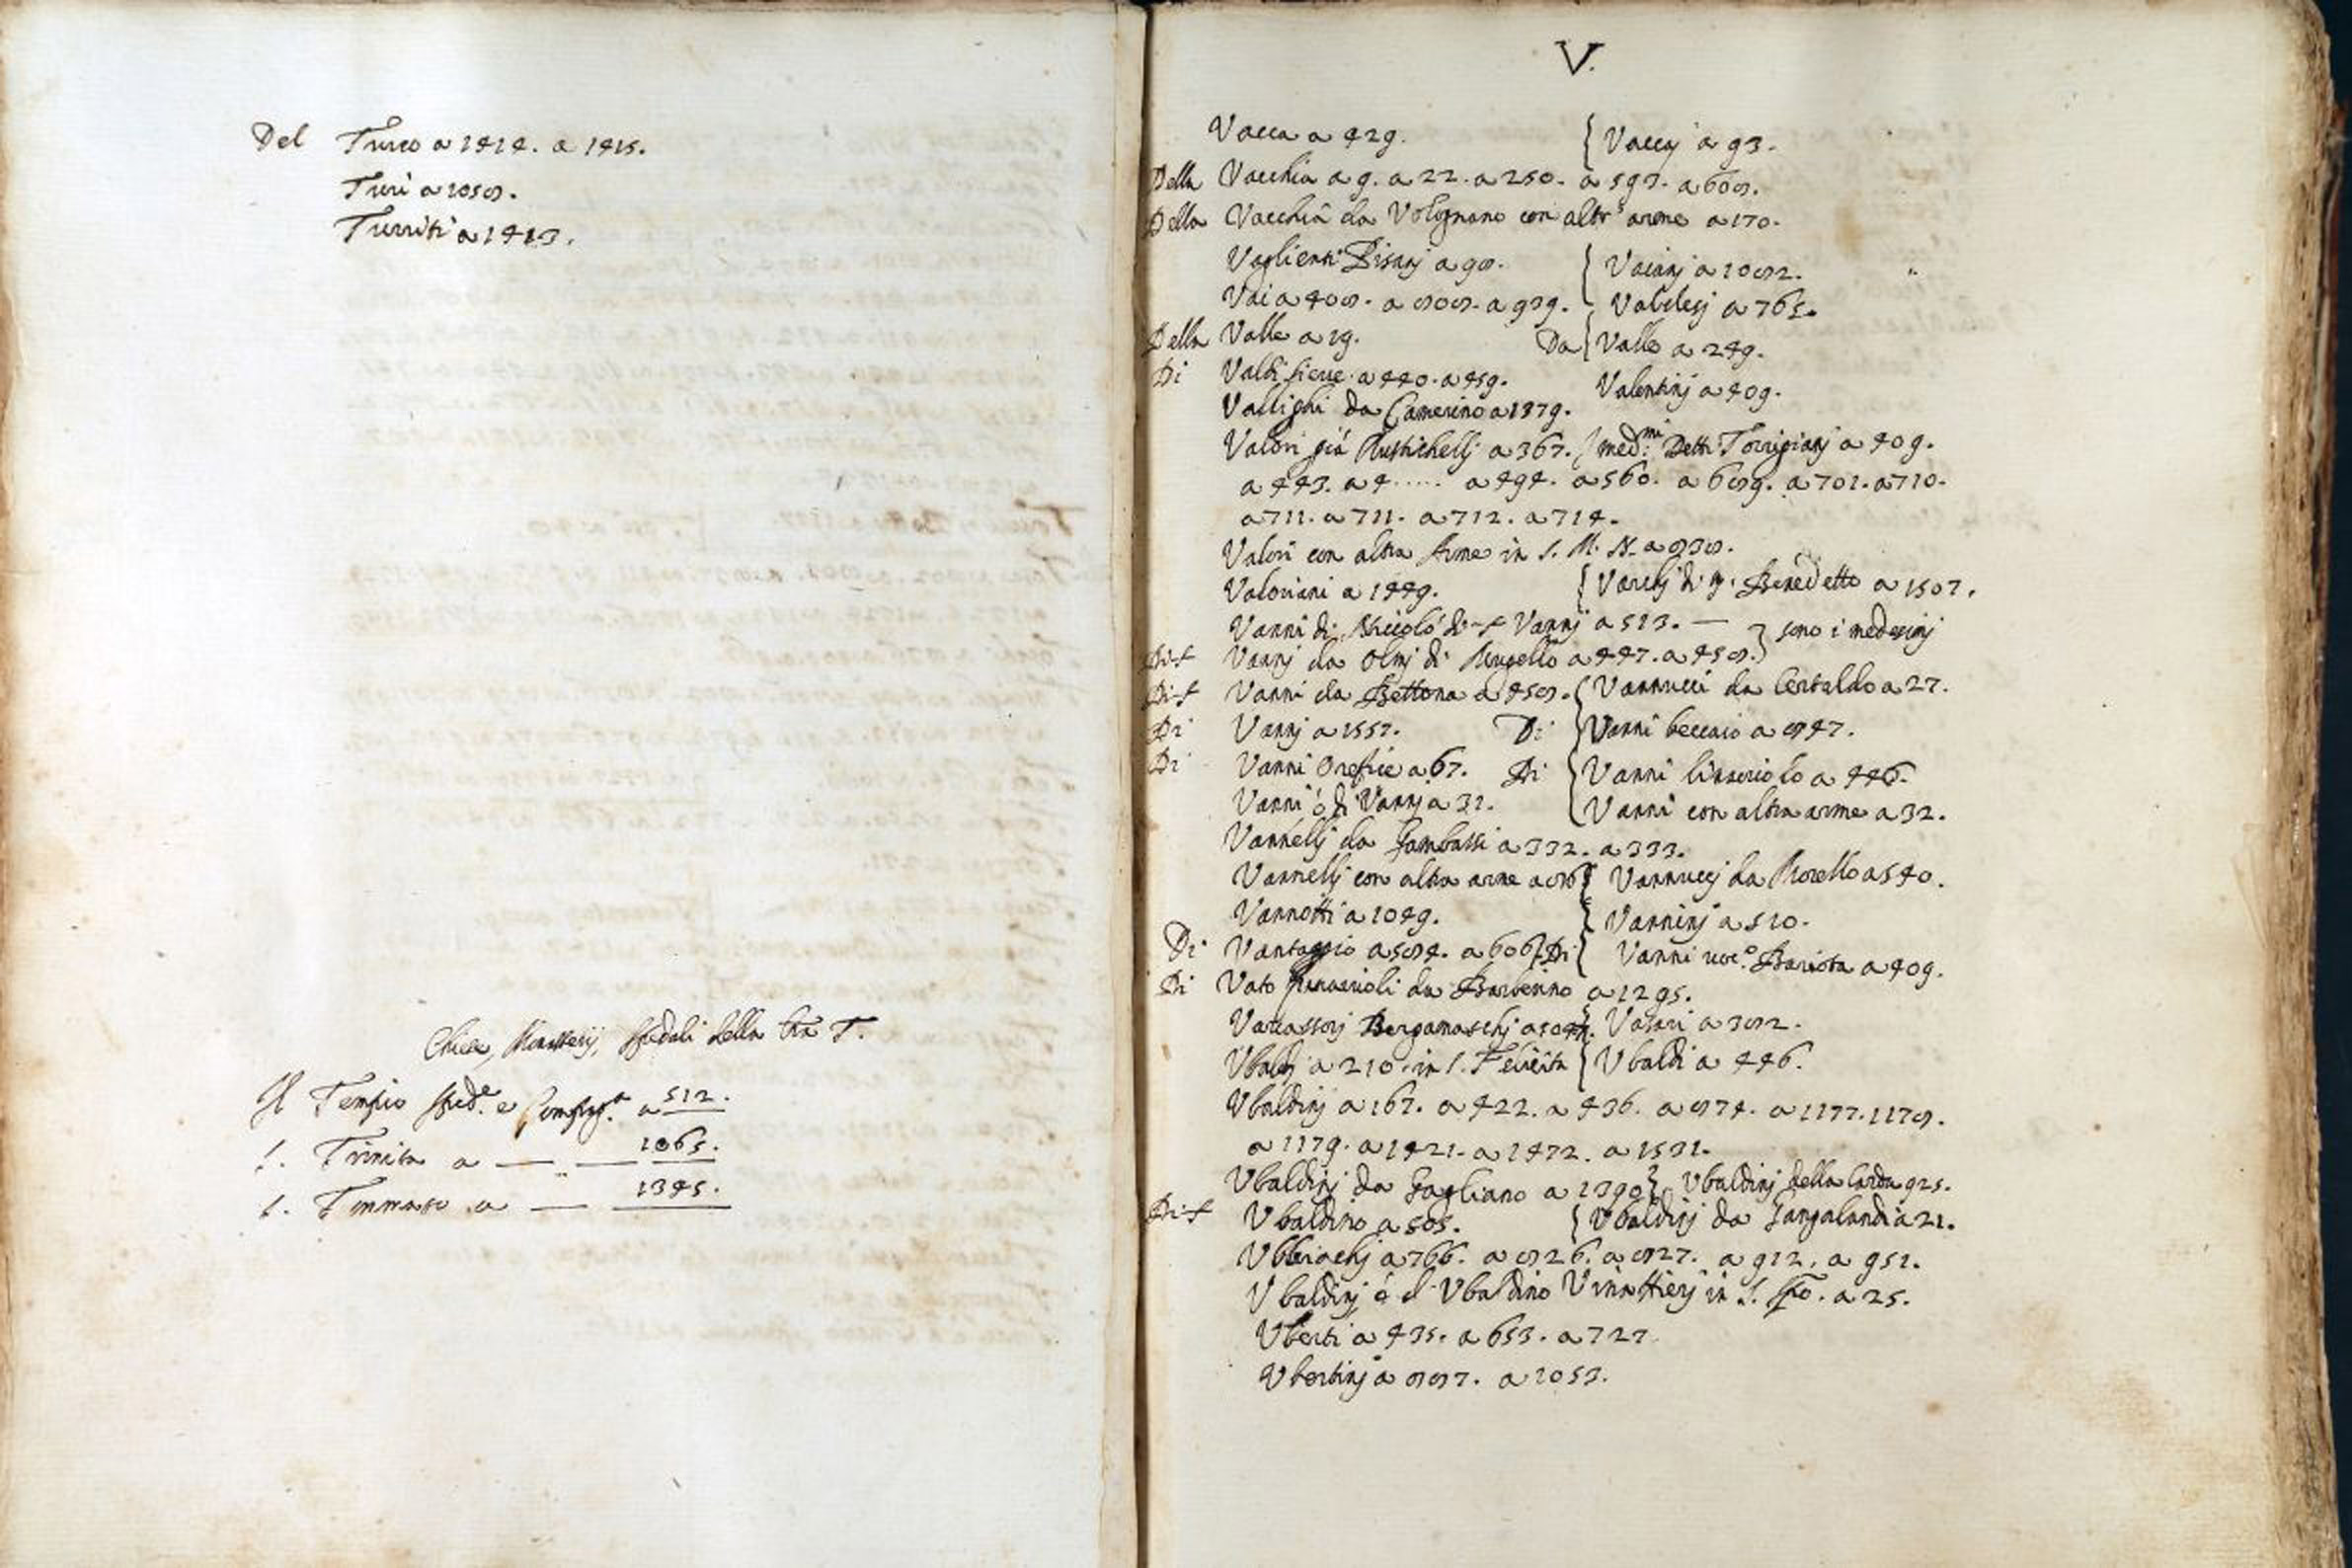 Del Turco a 1414. a 1415.
Turi a 1058.
Turriti a 1413.
Chiese, Monasterij, Spedali della tra T.
Il Tempio sped.e e Compag.a a 512.
S. Trinita a — — 1065.
S. Tommaso a — 1345.
V.
Vacca a 429. { Vaccaj a 93.
Della Vacchia a 9. a 22. a 250. a 593. a 608.
Della Vacchia da Volognano con altr' arme a 170.
Vaglienti Pisanj a 98. { Vaianj a 1082.
Vai a 408. a 808. a 939. Valdesj a 765.
Della Valle a 19. Da { Valle a 249.
Di Valdi sieve a 440. a 459. Valentinj a 409.
da Camerino a 1379.
Valori giá Rustichellj a 367. { med.mi Detti Torrigianj a 409.
a 443. a 4..... a 494. a 560. a 689. a 701. a 710.
a 711. a 711. a 712. a 714.
Valori con altra Arme in S. M. N. a 838.
Valoriani a 1449. { di Benedetto a 1507.
Vanni di Niccoló di S Vannj a 513. — } sono i medesimj
Di S Vannj da Olmj di Mugello a 447. a 458.
Di S Vanni da Bettona a 458. { Vannucci da Certaldo a 27.
Di Vannj a 1557. Di { Vanni beccaio a 847.
Di Vanni Orefice a 67. Di { Vanni linaiolo a 446.
Vanni ó di Vannj a 31. { Vanni con altra arme a 32.
Vannellj da Gambassi a 332. a 333.
Vannellj con altra arme a { Vannuccj da Morello a 540.
Vannotti a 1049. { Vanninj a 510.
Di Vantaggio a 584. a 606. Di { Vanni a 409.
Di Vato da Barberino a 1295.
Bergamaschj a { Vasari a 382.
Ubaldj a 210. in S. Felicita { Ubaldi a 446.
Ubaldinj a 167. a 422. a 436. a 874. a 1177. 1178.
a 1179. a 1421. a 1472. a 1531.
Ubaldinj da Gagliano a 1390 { Ubaldinj della Carda 925.
Di S Ubaldino a 505. { Ubaldinj da Gangalandi a 21.
Ubbriachj a 766. a 826. a 827. a 912. a 951.
Ubaldinj ó d' Ubaldino Vinattierj in S. Spo. a 25.
Uberti a 435. a 653. a 727.
Ubertinj a 887. a 1053.